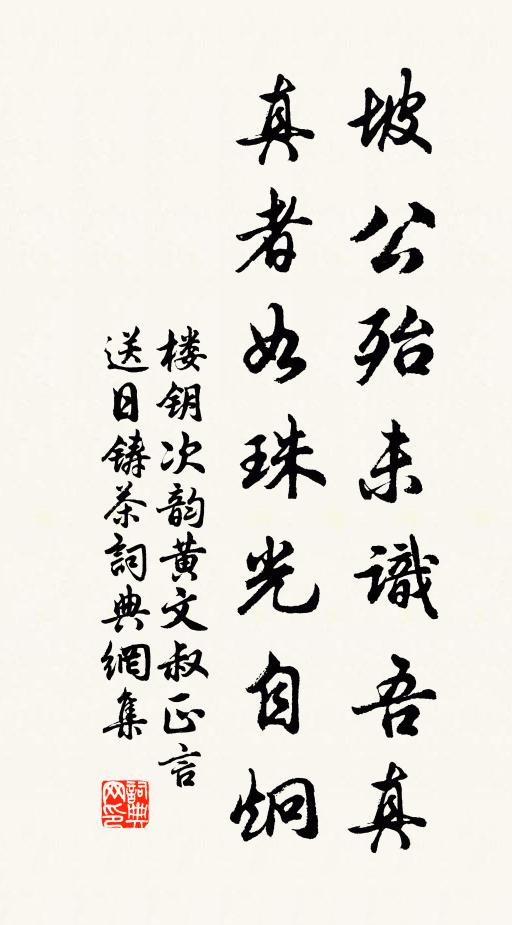 坡公殆未識吾真
真者如珠光自炯
楼钥次韵黄文叔正言
送日铸茶詞典網集
詞典
网印